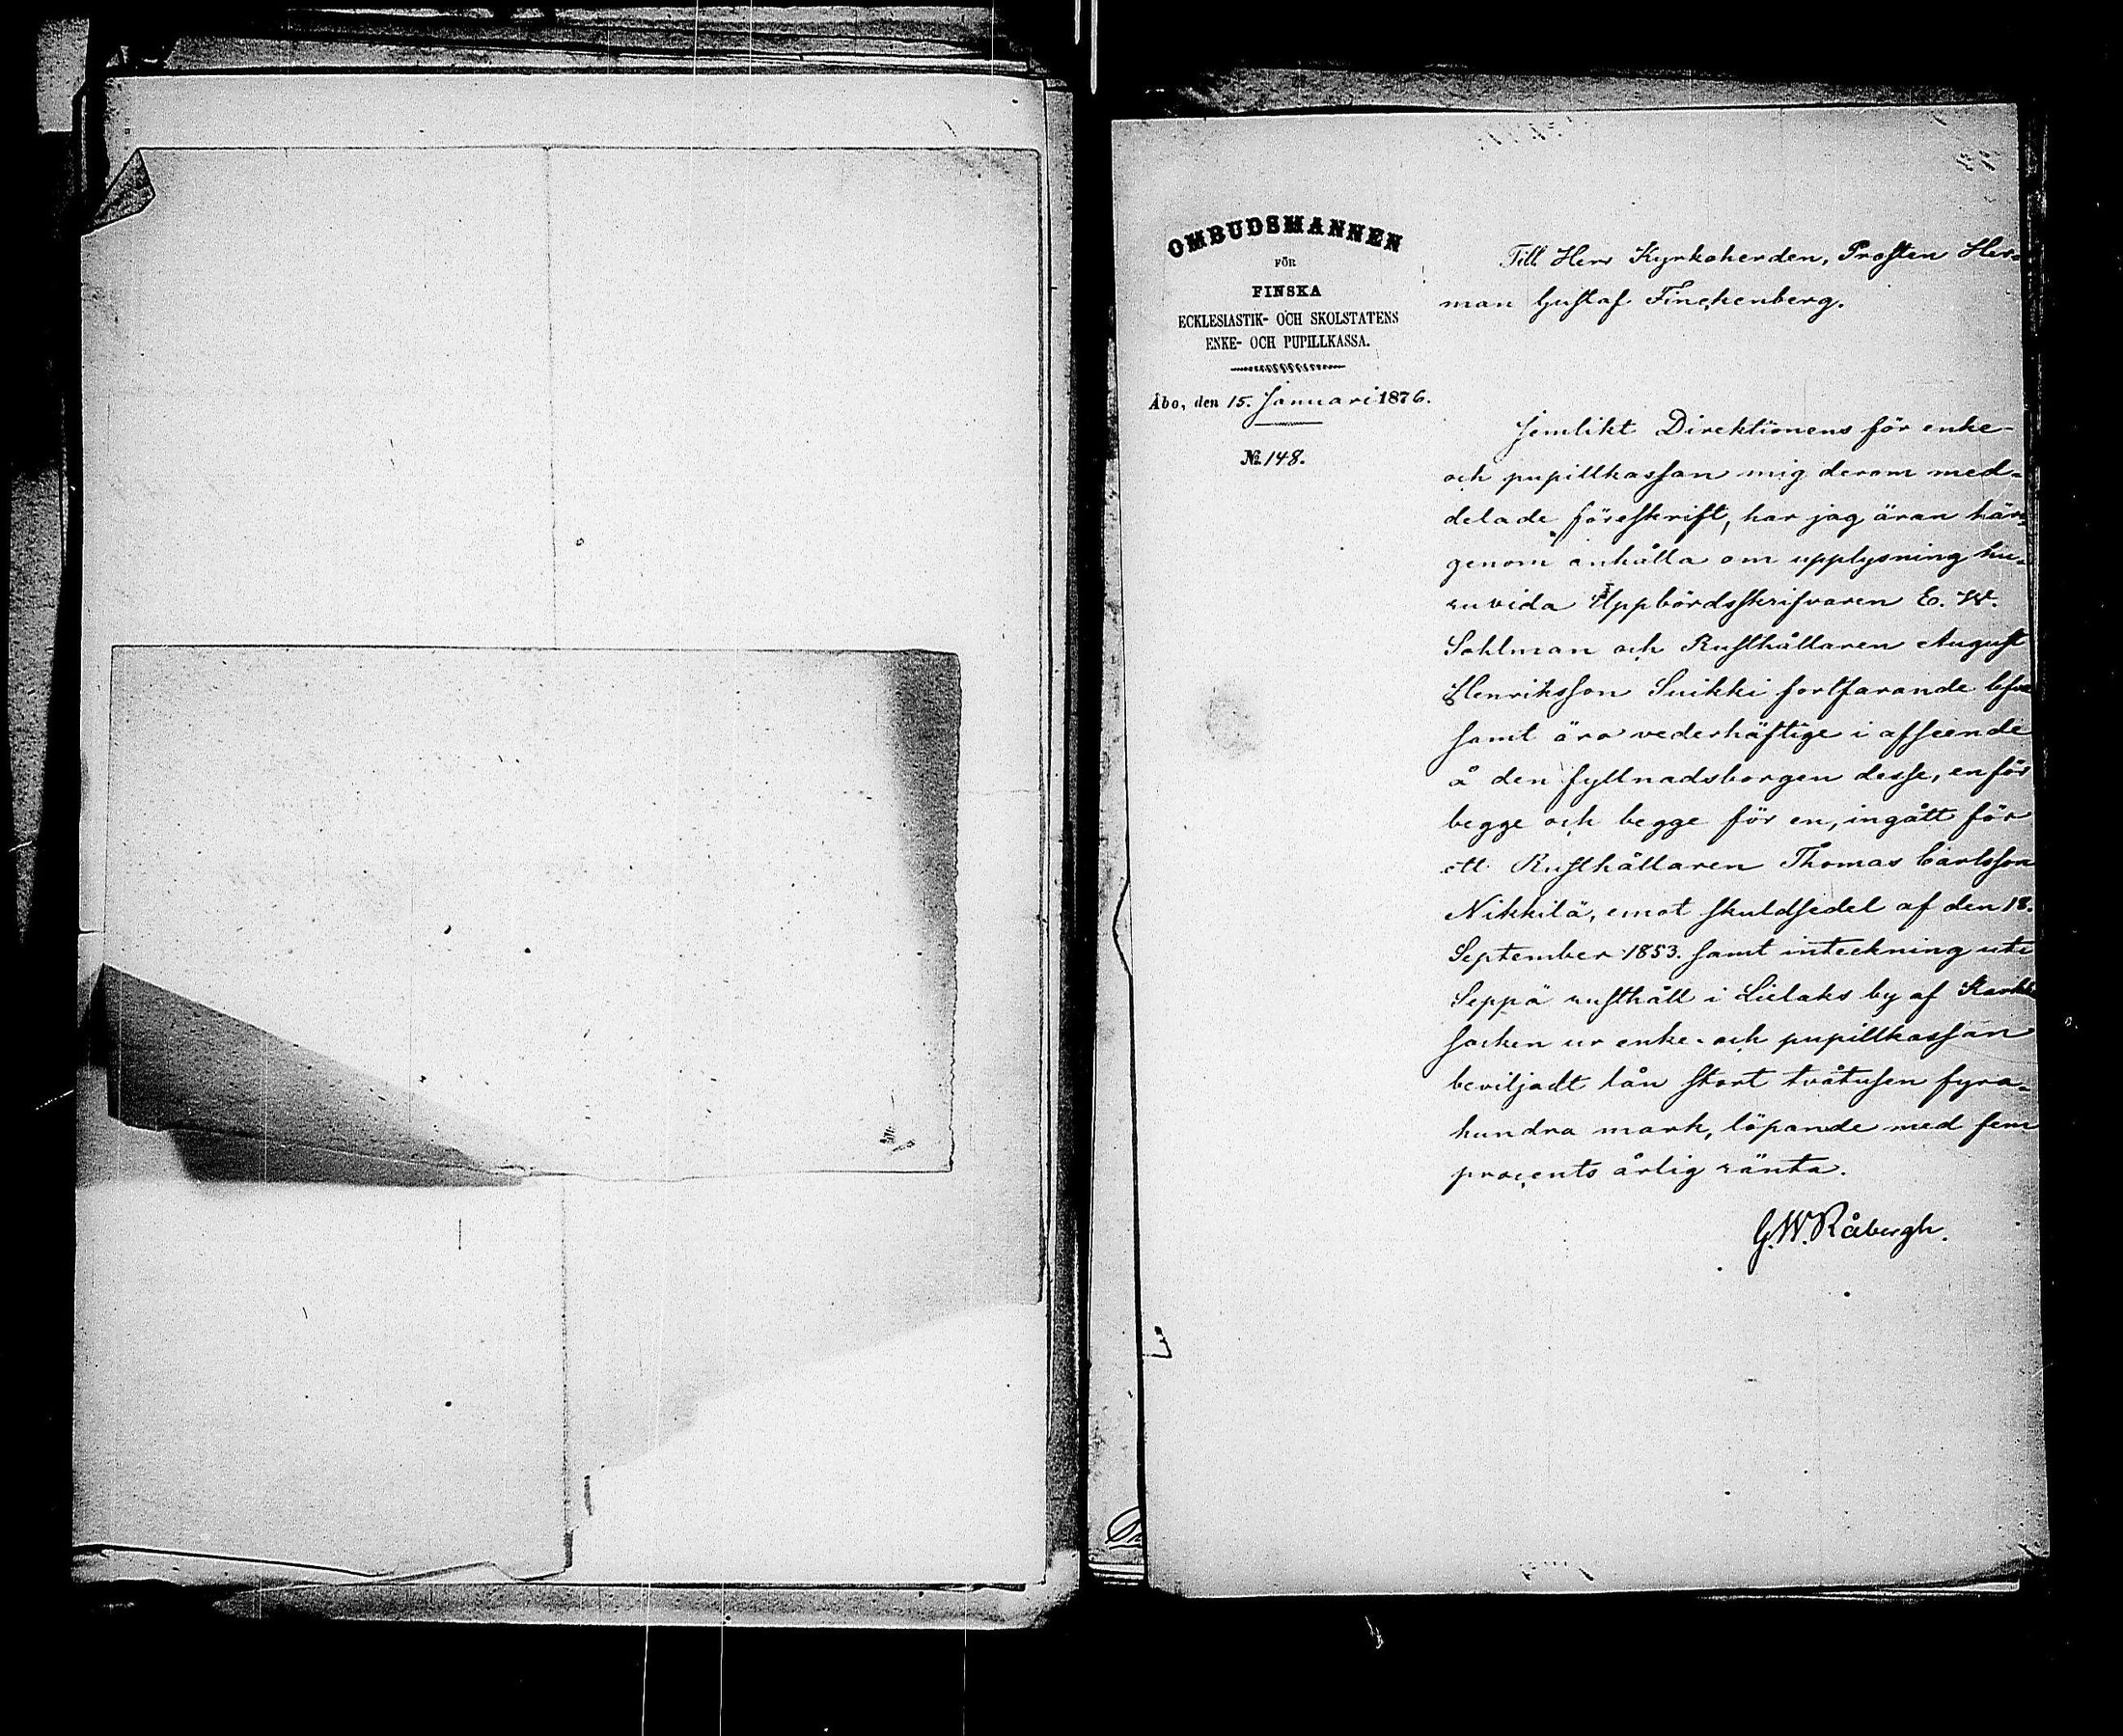 OMBUDSMANNEN
FÖR
FINSKA
ECKLESIASTIK- OCH SKOLSTATENS
ENKE- OCH PUPILLKASSA.
Åbo, den 15. Januari 1876.
№ 148.
Till Herr Kyrkoherden, Prosten Her-
man Gustaf Finckenberg.
Jemlikt Direktionens för enke-
och pupillkassan mig derom med-
delade föreskrift, har jag äran här-
genom anhålla om upplysning hu-
ruvida Uppbördsskrifvaren E. W.
Sohlman och Rusthållaren August
Henriksson Suikki fortfarande lefva
samt äro vederhäftige i afseende
å den fyllnadsborgen desse, en för
begge och begge för en, ingått för
ett Rusthållaren Thomas Carlsson
Nikkilä, emot skuldsedel af den 18.
September 1853. samt inteckning uti
Seppä rusthåll i Lielaks by af Karkku
socken ur enke- och pupillkassan
beviljadt lån stort tvåtusen fyra-
hundra mark, löpande med fem
procents årlig ränta.
G. W. Råbergh.